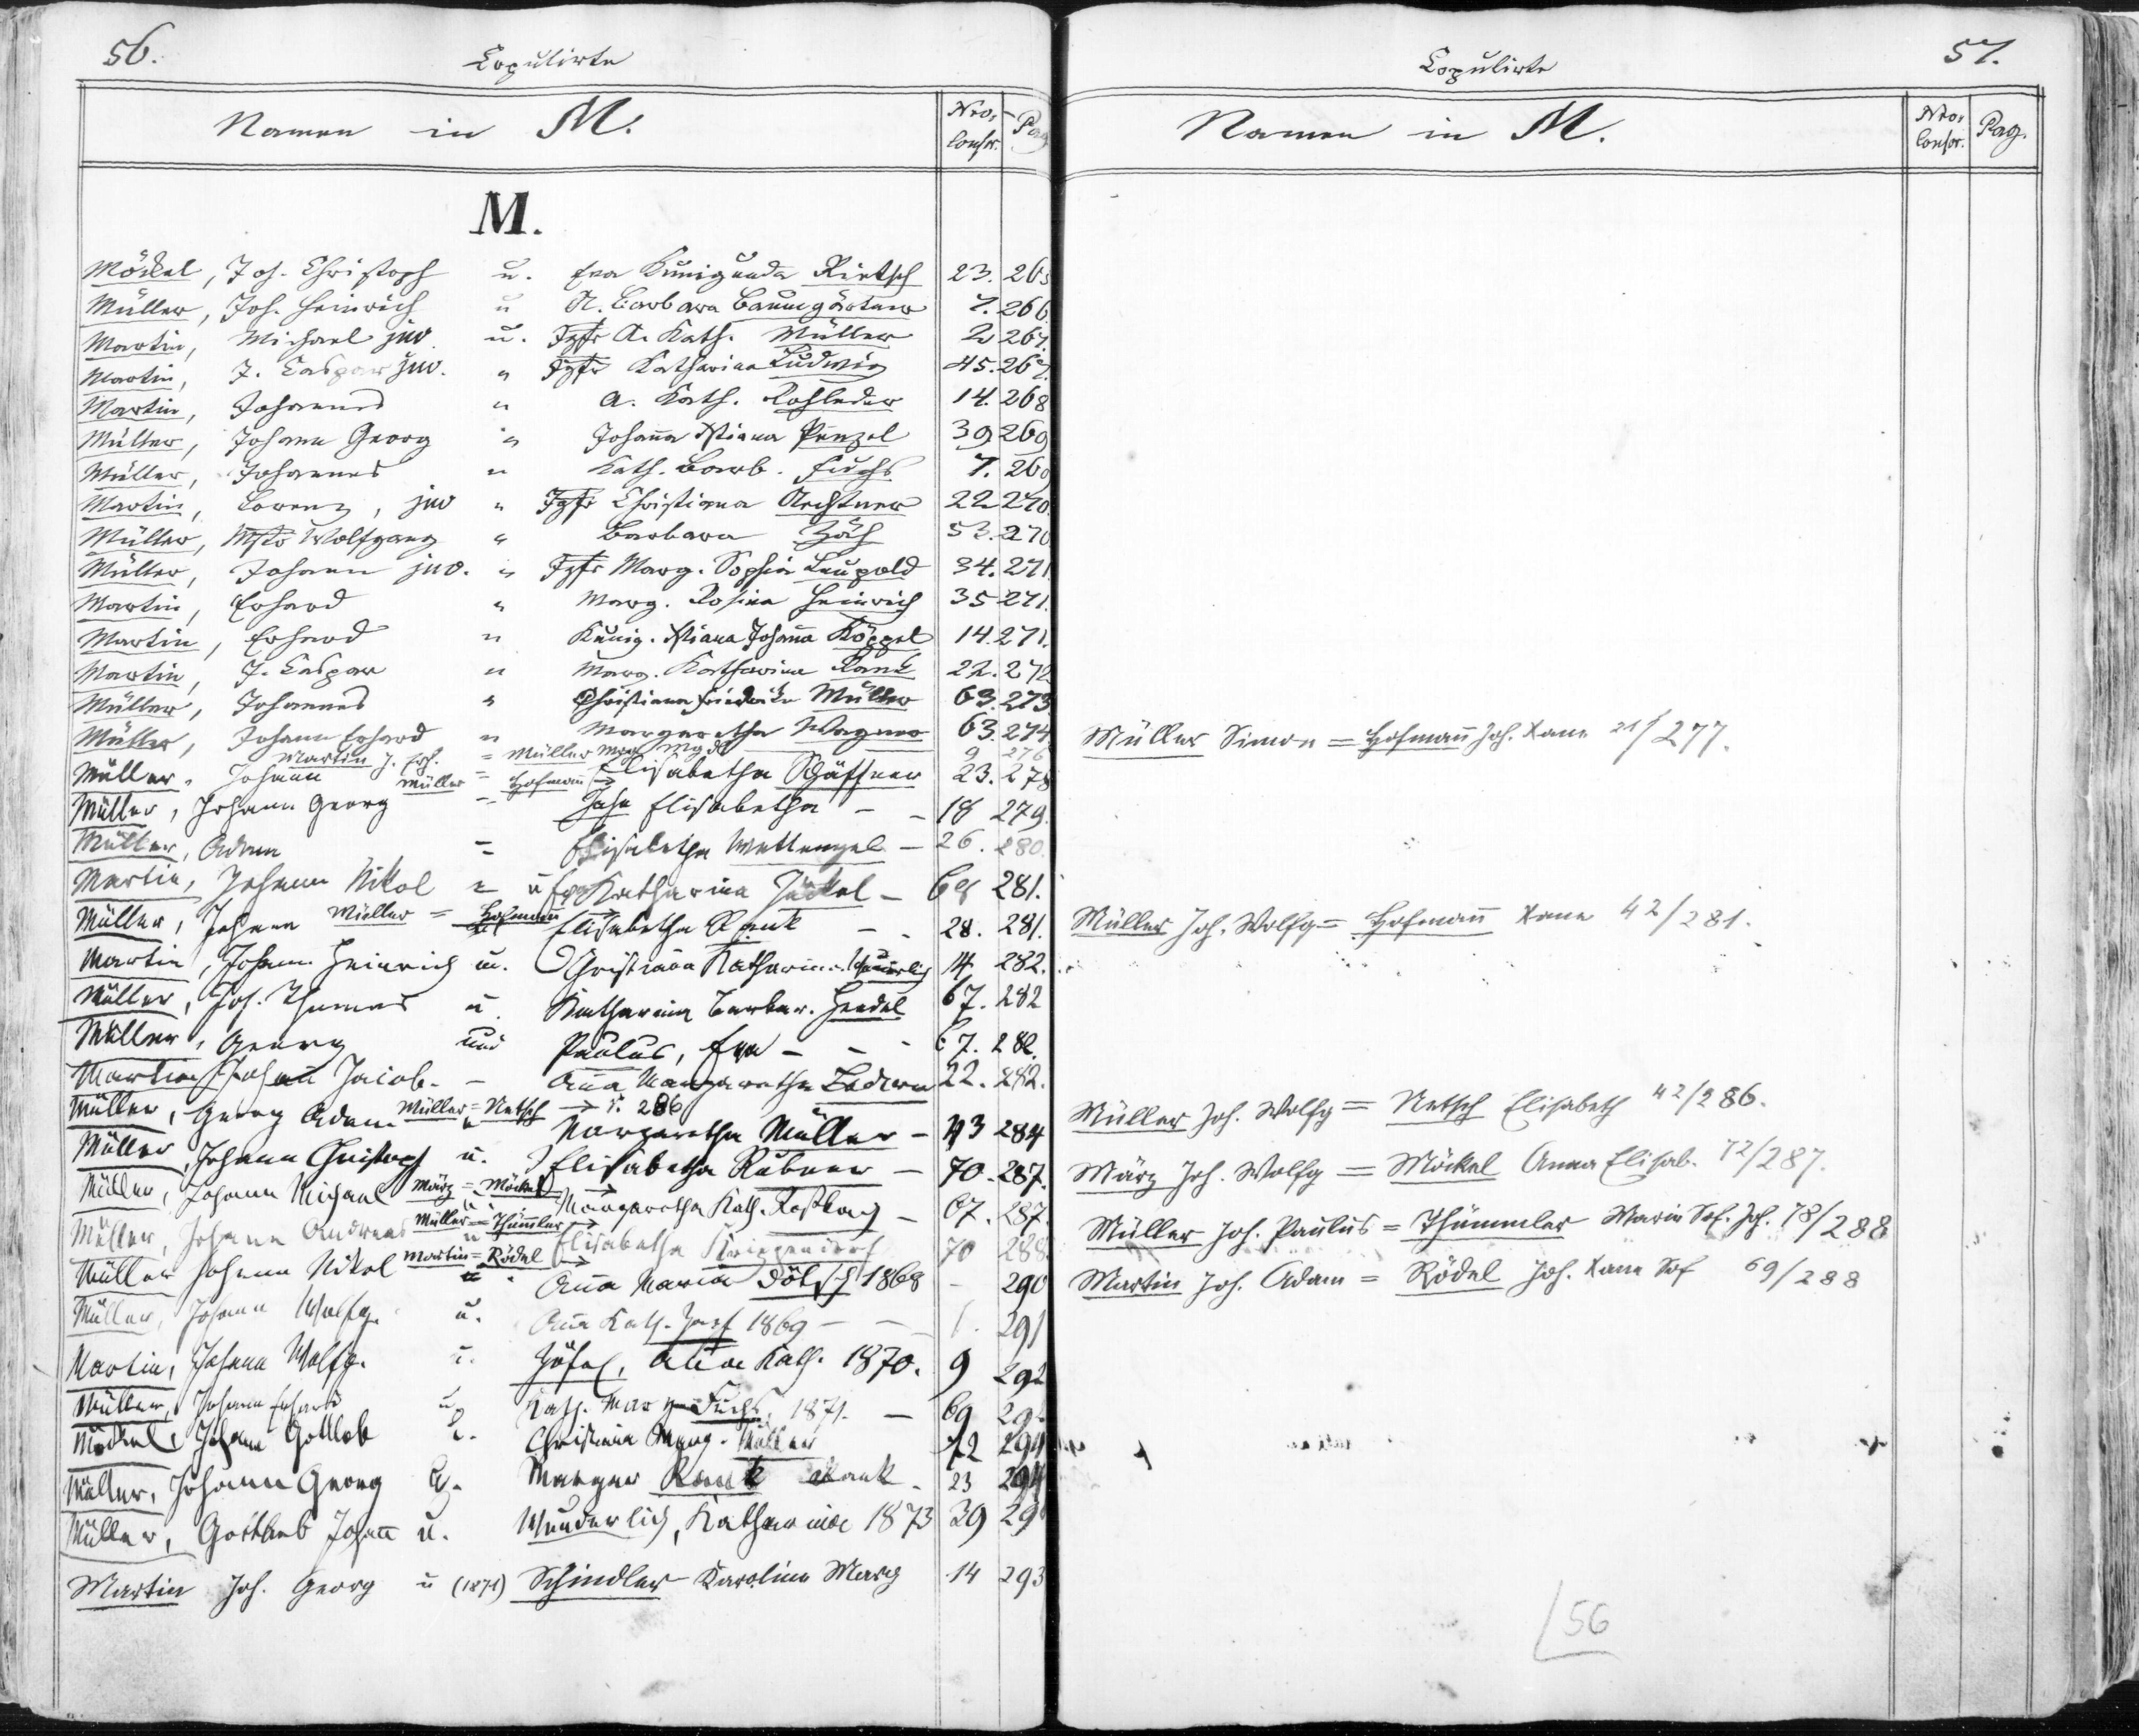 56.
Copulirte
Namen in M.
Nro. Conscr.
Pag
M.
Möckel, Joh. Christoph u. Eva Kunigunda Rietsch 23. 265
Müller, Joh. Heinrich u A. Barbara Baumgärtner 7. 266.
Martin, Michael juv. u. Jgfr A. Kath. Müller 2 267.
Martin, J. Caspar juv. " Jgfr Katharina Ludwig 45. 267.
Martin, Johannes " A. Kath. Rohleder 14. 268
Müller, Johann Georg " Johanna Xstiana Penzel 39 269
Müller, Johannes " Kath. Barb. Fuchs 7. 269
Martin, Lorenz, juv " Jgfr Christiana Aechtner 22 270.
Müller, Mstr Wolfgang " Barbara Zöh 53. 270
Müller, Johann juv. " Jgfr Marg. Sophia Leupold 34. 271
Martin, Erhard " Marg. Rosina Heinrich 35 271.
Martin, Erhard " Kunig. Xstiana Johanna Köppel 14. 271.
Martin, J. Caspar " Marg. Katharina Rank 22. 272
Müller, Johannes " Christiana Friederike Müller 63. 273
Müller, Johann Erhard " Margaretha Wagner 63. 274
Martin J. Erh. = Müller Mrg Mgd 9 276
Müller, Johann = Elisabetha Schäffner 23. 278
Müller = Hofmann →
Müller, Johann Georg = Jahn Elisabetha - - 18 279.
Müller, Adam = Elisabetha Wettengel - 26. 280.
Martin, Johann Nikol = u Eva Katharina Jäckel - 68 281.
Müller = Hofmann →
Müller, Johann u Elisabetha Rank - - 28. 281.
Martin, Johann Heinrich u. Christiana Katharina Wunderlich 14. 282.
Müller, Joh. Thomas u. Katharina Barbar. Hendel 67. 282
Müller, Georg und Paulus, Eva - - - 67. 282.
Martin Johann Jacob. - Anna Margaretha Ludwig 22. 282.
Müller = Netsch → S. 286
Müller, Georg Adam u Margaretha Müller - 43 284
Müller, Johann Christoph u. Elisabetha Rubner - 70. 287.
März = Möckel →
Müller, Johann Michael u. Margaretha Kath. Roßbach - 67. 287.
Müller = Thümmler →
Müller, Johann Andreas u Elisabetha Kriegendorf 70 288
Martin = Rödel →
Müller Johann Nikol u. Anna Maria Dötsch 1868 - 290
Müller, Johann Wolfg. u. Anna Kath. Hopf 1869 - - 1. 291
Martin, Johann Wolfg. u. Höfel, Anna Kath. 1870. 9 292
Müller, Johann Erhard u. Kath. Marg. Fuchs, 1871. - 69 29
Möckel, Johann Gottlob u. Christiana Marg. Müller 72 294
Müller, Johann Georg u. Margar Rank Rank - 23 294
Müller, Gottlieb Johann u. Wunderlich, Katharina 1873 39 29
Martin Joh. Georg u (1871) Schindler Karoline Marg 14 293
57.
Copulirte
Namen in M.
Nro. Conscr.
Pag.
Müller Simon = Hofmann Joh. Xane 21/277.
Müller Joh. Wolfg = Hofmann Xane 42/281.
Müller Joh. Wolfg = Netsch Elisabeth 42/286.
März Joh. Wolfg = Möckel Anna Elisab. 72/287.
Müller Joh. Paulus = Thümmler Maria Sof. Joh. 78/288
Martin Joh. Adam = Rödel Joh. Xane Sof 69/288
56